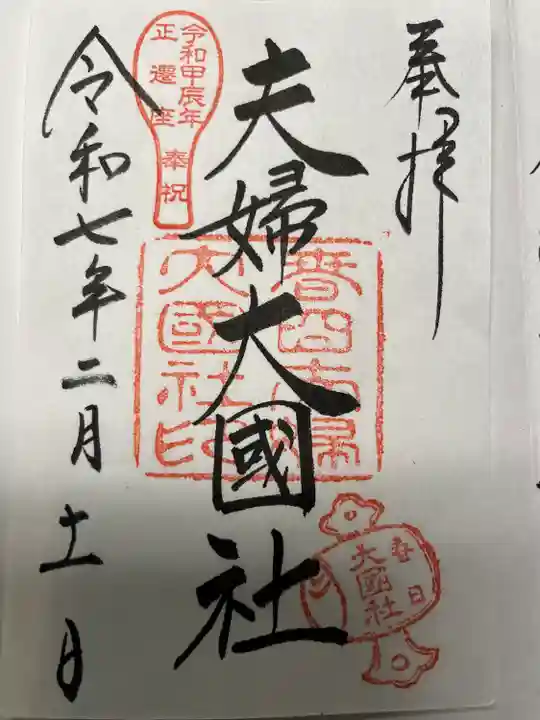 奉拝
夫婦大國社
令和七年二月十一日
令和甲辰年
正遷座 奉祝
春日
大國社
大國社印